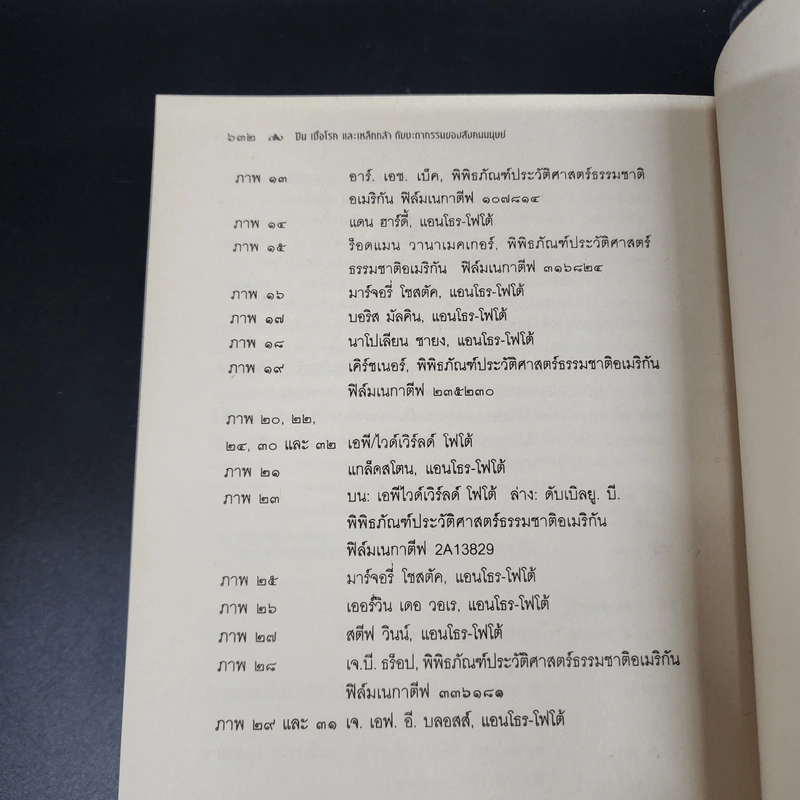 ๖๓๒ ปืน เชื้อโรค และเหล็กกล้า กับชะตากรรมของสังคมมนุษย์
ภาพ ๑๓ อาร์. เอช. เบ็ค, พิพิธภัณฑ์ประวัติศาสตร์ธรรมชาติ
อเมริกัน ฟิล์มเนกาตีฟ ๑๐๗๘๑๔
ภาพ ๑๔ แดน ฮาร์ดี้, แอนโธร-โฟโต้
ภาพ ๑๕ ร็อดแมน วานาเมคเกอร์, พิพิธภัณฑ์ประวัติศาสตร์
ธรรมชาติอเมริกัน ฟิล์มเนกาตีฟ ๓๑๖๘๒๔
ภาพ ๑๖ มาร์จอรี่ โชสตัค, แอนโธร-โฟโต้
ภาพ ๑๗ บอริส มัลคิน, แอนโธร-โฟโต้
ภาพ ๑๘ นาโปเลียน ชายง, แอนโธร-โฟโต้
ภาพ ๑๙ เคิร์ชเนอร์, พิพิธภัณฑ์ประวัติศาสตร์ธรรมชาติอเมริกัน
ฟิล์มเนกาตีฟ ๒๓๕๒๓๐
ภาพ ๒๐, ๒๒,
๒๔, ๓๐ และ ๓๒ เอพี/ไวด์เวิร์ลด์ โฟโต้
ภาพ ๒๑ แกล็คสโตน, แอนโธร-โฟโต้
ภาพ ๒๓ บน: เอพีไวด์เวิร์ลด์ โฟโต้ ล่าง: ดับเบิลยู. บี.
พิพิธภัณฑ์ประวัติศาสตร์ธรรมชาติอเมริกัน
ฟิล์มเนกาตีฟ 2A13829
ภาพ ๒๕ มาร์จอรี่ โชสตัค, แอนโธร-โฟโต้
ภาพ ๒๖ เออร์วิน เดอ วอเร, แอนโธร-โฟโต้
ภาพ ๒๗ สตีฟ วินน์, แอนโธร-โฟโต้
ภาพ ๒๘ เจ.บี. ธร็อป, พิพิธภัณฑ์ประวัติศาสตร์ธรรมชาติอเมริกัน
ฟิล์มเนกาตีฟ ๓๓๖๑๘๑
ภาพ ๒๙ และ ๓๑ เจ. เอฟ. อี. บลอสส์, แอนโธร-โฟโต้